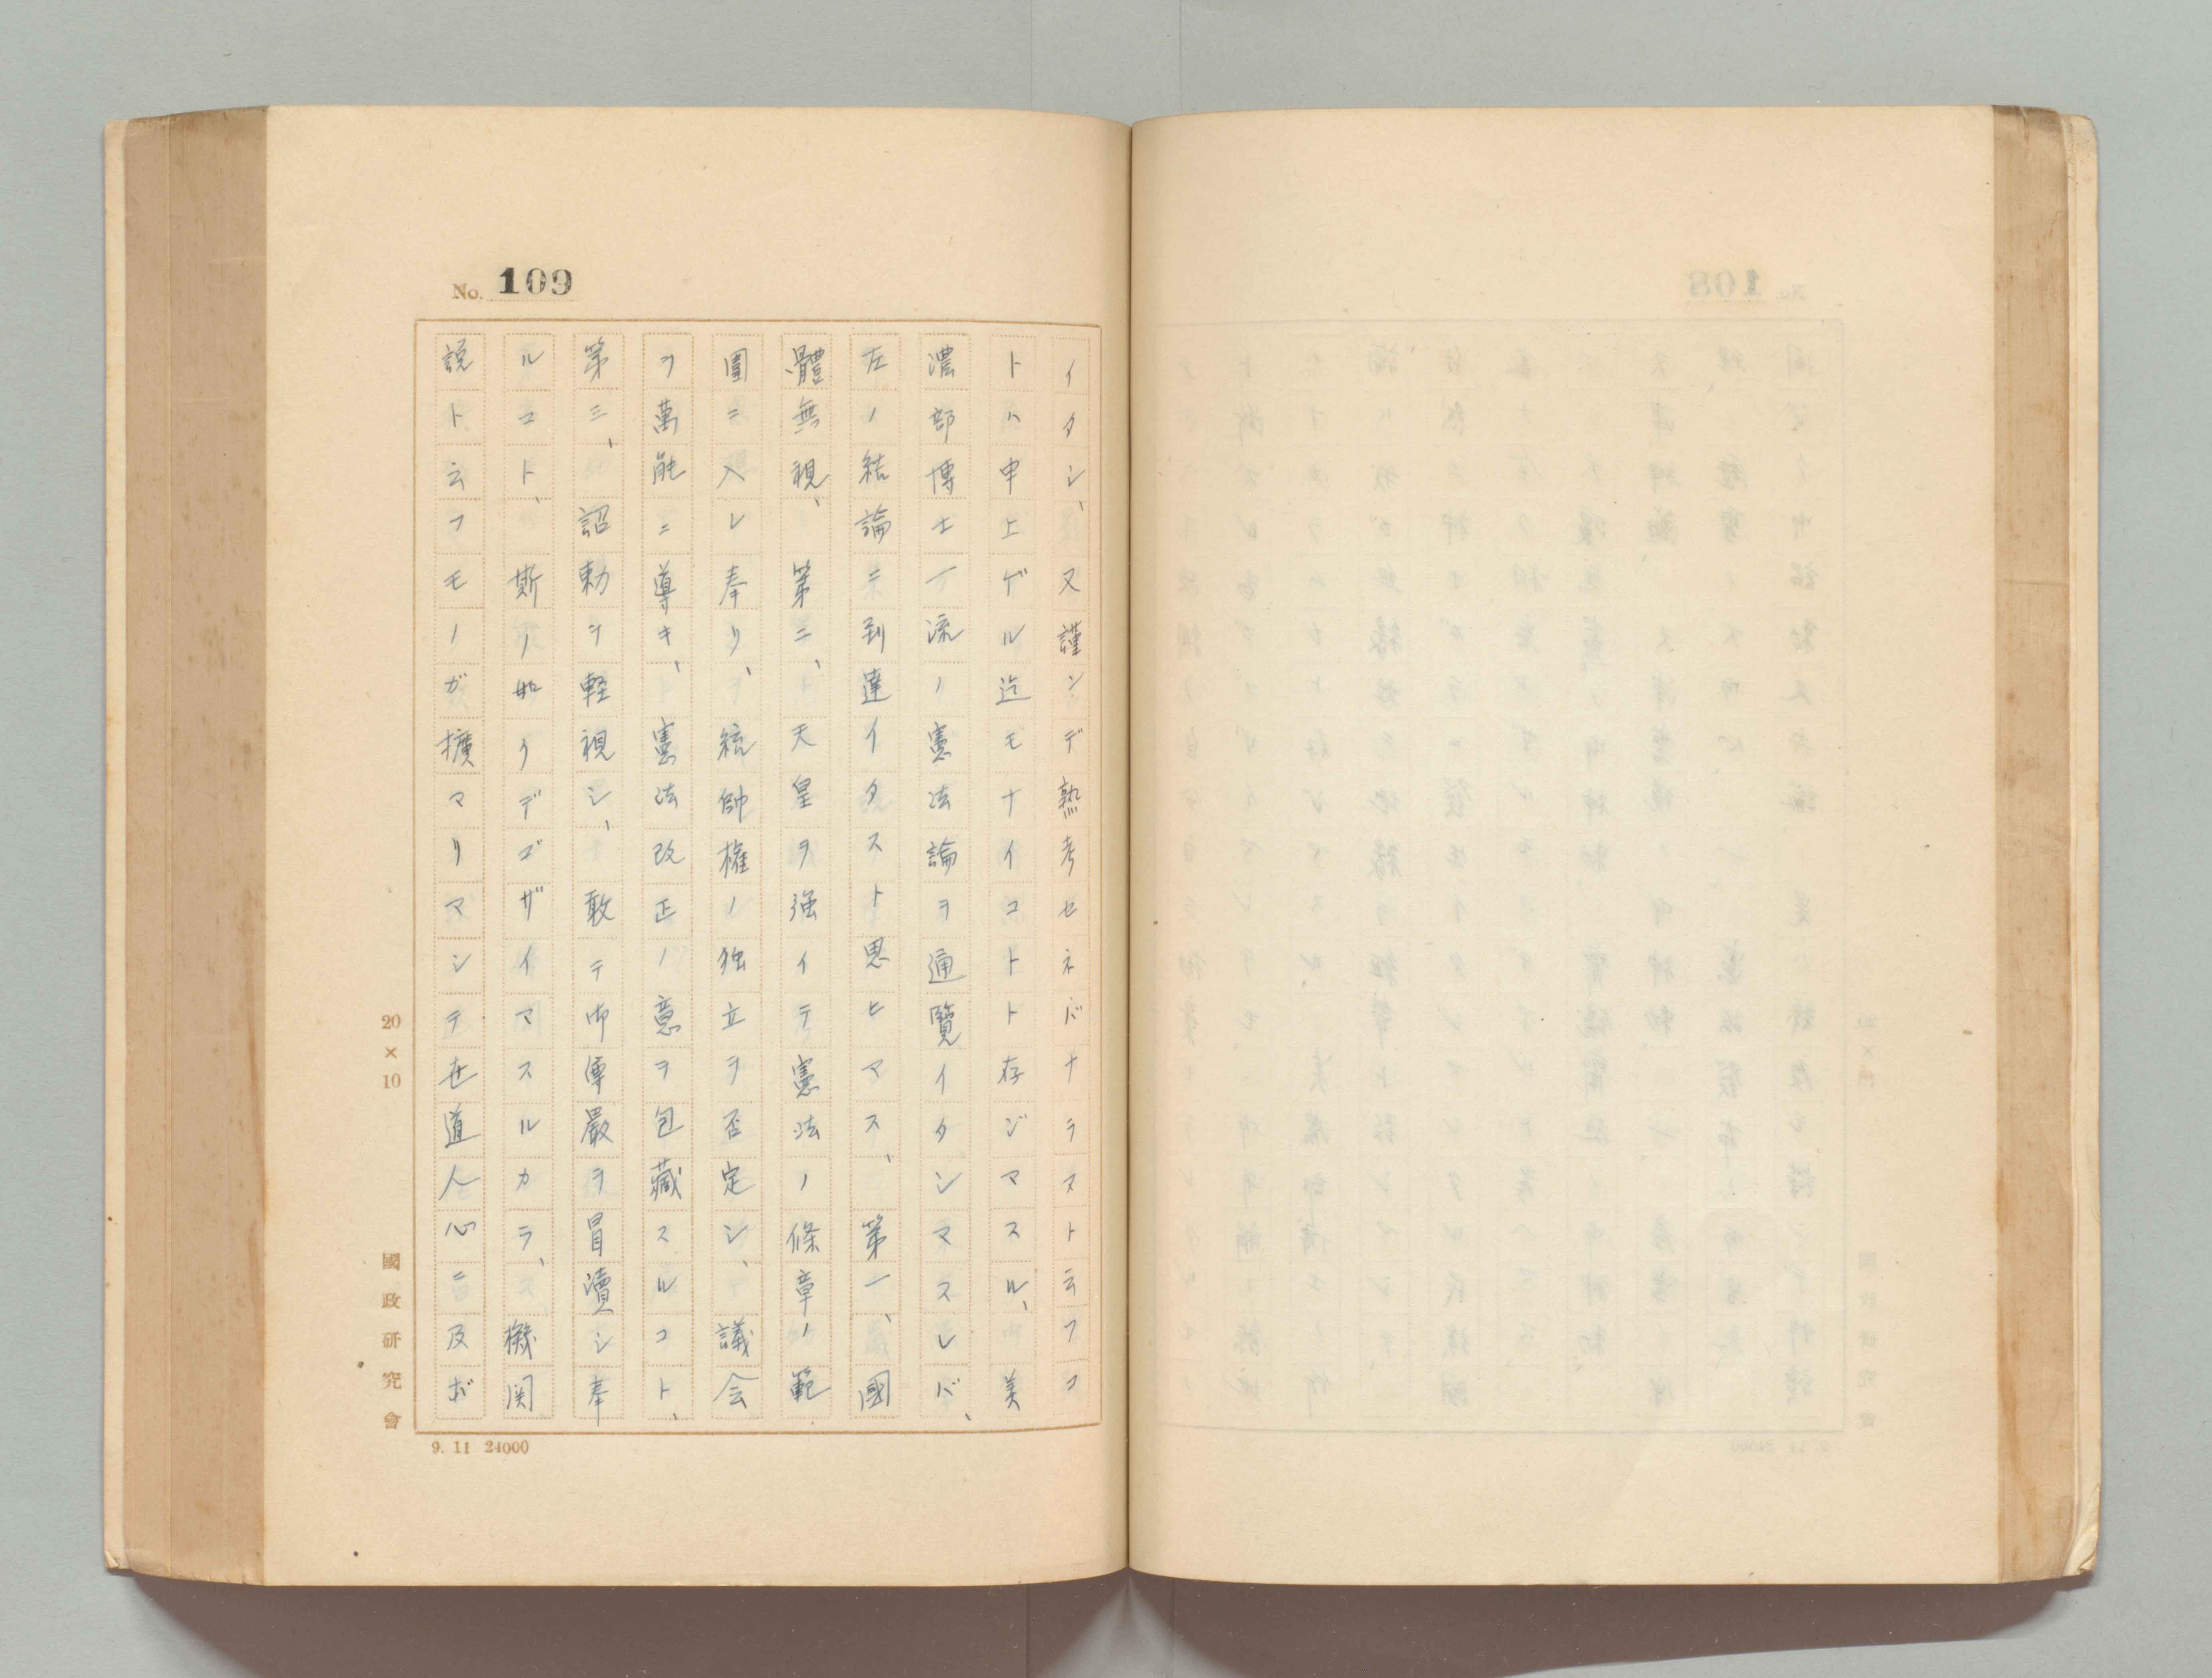 No. 109
イタシ、又謹ンデ熟考セネバナラヌト云フコ
トハ申上ゲル迄モナイコトト存ジマスル、美
濃部博士一流ノ憲法論ヲ通覽イタシマスレバ、
左ノ結論ニ到達イタスト思ヒマス、第一、國
體無視、第二、天皇ヲ强イテ憲法ノ條章ノ範
圍ニ入レ奉リ、統帥權ノ独立ヲ否定シ、議会
ヲ萬能ニ導キ、憲法改正ノ意ヲ包藏スルコト、
第三、詔勅ヲ軽視シ、敢テ御尊嚴ヲ冒瀆シ奉
ルコト、斯ノ如クデゴザイマスルカラ、機関
説ト云フモノガ擴マリマシテ世道人心ニ及ボ
20×10
國政研究會
9. 11 24000